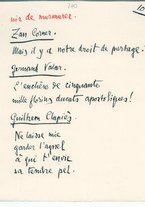 240
10
nia de murmurer.
Zan Corner.
Mais il y a notre droit de partage!
Germond Vatar.
L'enchère de cinquante
mille florins ducats apostoliques!
Guilhem Clapiès
Ne laisse mie
garder l'agnel
à qui t'envie
sa tendre pel.